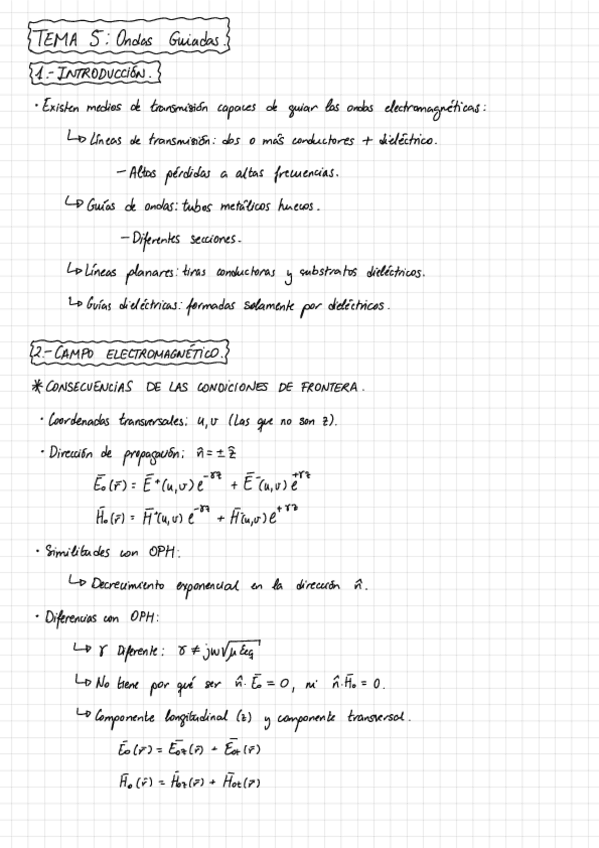 TEMA 5: Ondas Guiadas.
1.- INTRODUCCIÓN.
· Existen medios de transmisión capaces de guiar las ondas electromagnéticas:
↳ Líneas de transmisión: dos o más conductores + dieléctrico.
- Altas pérdidas a altas frecuencias.
↳ Guías de ondas: tubos metálicos huecos.
- Diferentes secciones.
↳ Líneas planares: tiras conductoras y substratos dieléctricos.
↳ Guías dieléctricas: formadas solamente por dieléctricos.
2.- CAMPO ELECTROMAGNÉTICO.
* CONSECUENCIAS DE LAS CONDICIONES DE FRONTERA.
· Coordenadas transversales: u, v (Las que no son z).
· Dirección de propagación: n̂ = ± ẑ
Ē₀(r̄) = Ē⁺(u,v) e^{-γz} + Ē⁻(u,v) e^{+γz}
H̄₀(r̄) = H̄⁺(u,v) e^{-γz} + H̄⁻(u,v) e^{+γz}
· Similitudes con OPH:
↳ Decrecimiento exponencial en la dirección n̂.
· Diferencias con OPH:
↳ γ Diferente: γ ≠ jω√(μ ε_eq)
↳ No tiene por qué ser n̂·Ē₀ = 0, ni n̂·H̄₀ = 0.
↳ Componente longitudinal (z) y componente transversal.
Ē₀(r̄) = Ē₀z(r̄) + Ē₀t(r̄)
H̄₀(r̄) = H̄₀z(r̄) + H̄₀t(r̄)